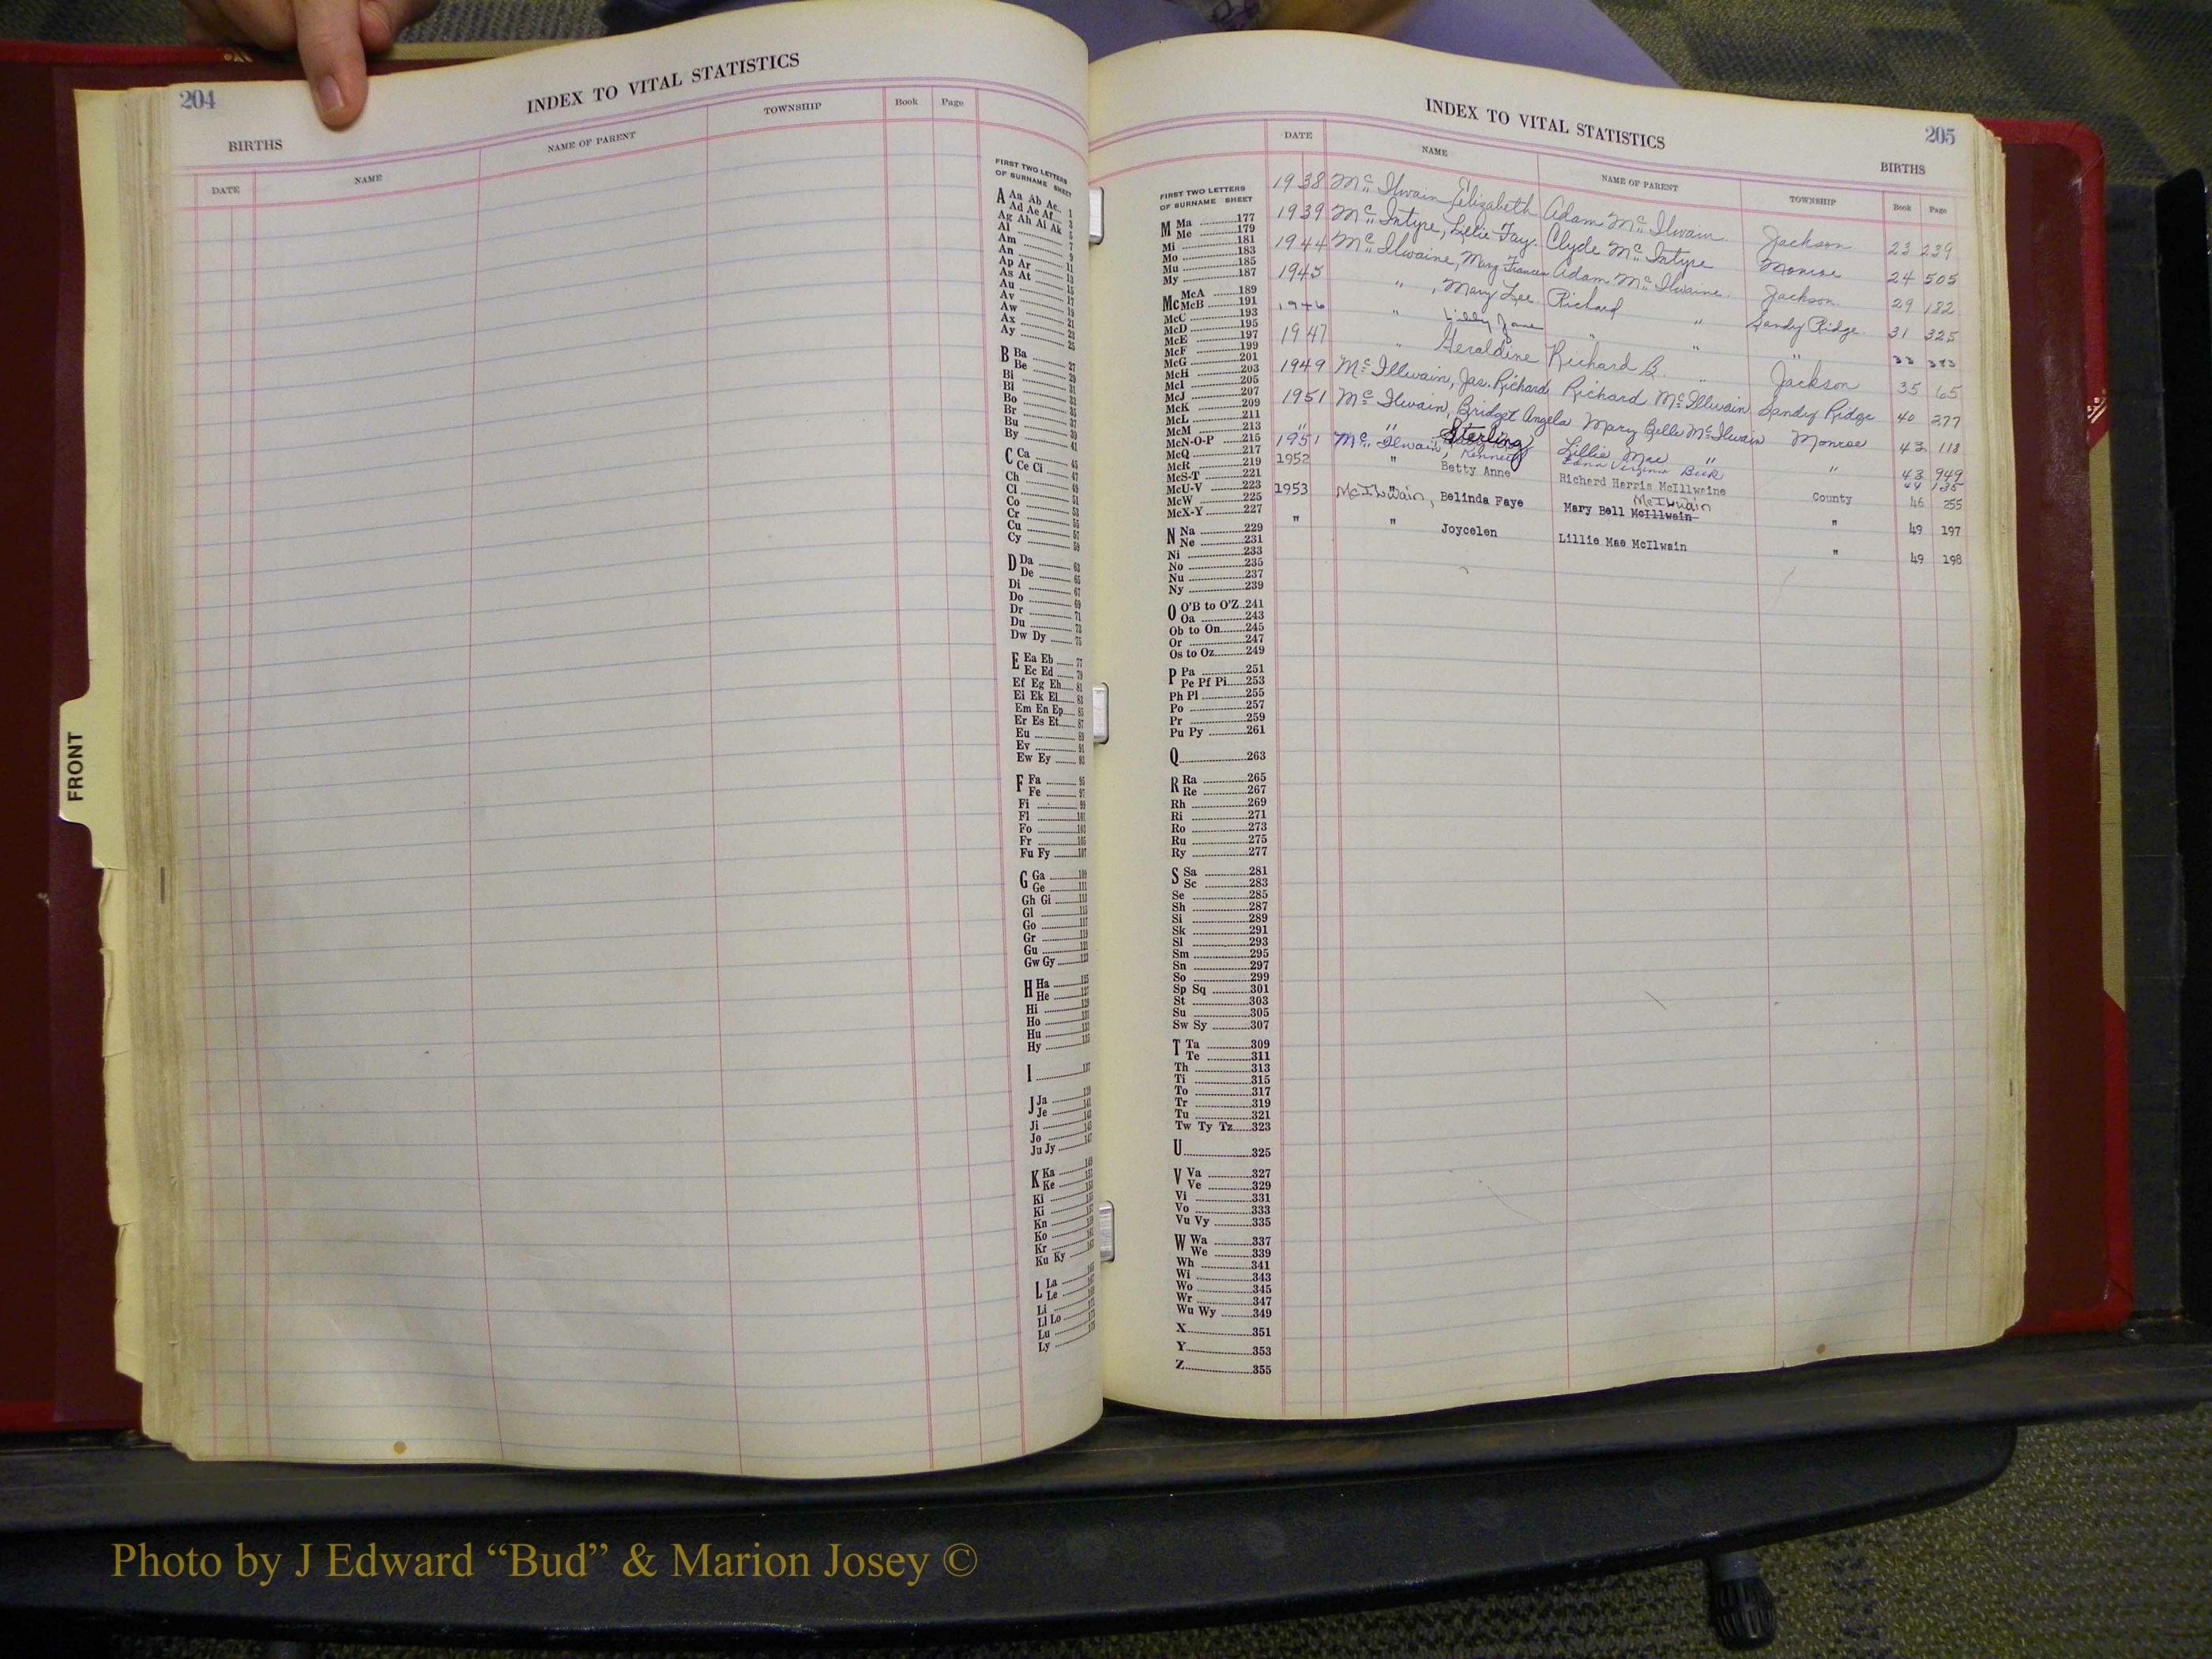 204
INDEX TO VITAL STATISTICS
BIRTHS
DATE NAME NAME OF PARENT TOWNSHIP Book Page
FIRST TWO LETTERS
OF SURNAME SHEET
A Aa Ab Ac 1
Ad Ae Af 3
Ag Ah Ai Ak 5
Al 7
Am 9
An 11
Ap Ar 13
As At 15
Au 17
Av 19
Aw 21
Ax 23
Ay 25
B Ba 27
Be 29
Bi 31
Bl 33
Bo 35
Br 37
Bu 39
By 41
C Ca 45
Ce Ci 47
Ch 49
Cl 51
Co 53
Cr 55
Cu 57
Cy 59
D Da 63
De 65
Di 67
Do 69
Dr 71
Du 73
Dw Dy 75
E Ea Eb 77
Ec Ed 79
Ef Eg Eh 81
Ei Ek El 83
Em En Ep 85
Er Es Et 87
Eu 89
Ev 91
Ew Ey 93
F Fa 95
Fe 97
Fi 99
Fl 101
Fo 103
Fr 105
Fu Fy 107
G Ga 109
Ge 111
Gh Gi 113
Gl 115
Go 117
Gr 119
Gu 121
Gw Gy 123
H Ha 125
He 127
Hi 129
Ho 131
Hu 133
Hy 135
I 137
J Ja 139
Je 141
Ji 143
Jo 145
Ju Jy 147
K Ka 149
Ke 151
Ki
Ki
Kn
Ko
Kr
Ku Ky
L La
Le
Li
Ll Lo
Lu
Ly
FRONT
INDEX TO VITAL STATISTICS
205
BIRTHS
DATE NAME NAME OF PARENT TOWNSHIP Book Page
1938 Mc Ilwain Elizabeth Adam Mc Ilwain Jackson 23 239
1939 Mc Intyre, Lillie Fay. Clyde Mc Intyre Monroe 24 505
1944 Mc Ilwaine, Mary Frances Adam Mc Ilwaine Jackson 29 182
1945 " , Mary Lee Richard " Sandy Ridge 31 325
1946 " Lilly Jane " " " 33 393
1947 " Geraldine Richard B. " Jackson 35 65
1949 Mc Illwain, Jas. Richard Richard Mc Illwain Sandy Ridge 40 277
1951 Mc Ilwain, Bridget Angela Mary Belle Mc Ilwain Monroe 43 118
" " Sterling Lillie Mae " " 43 949
1951 Mc Ilwain, Kenneth Virginia 44 135
1952 " Betty Anne Richard Harris McIllwaine County 46 255
1953 McIlwain, Belinda Faye Mary Bell McIllwain McIlwain " 49 197
" " Joycelen Lillie Mae McIlwain " 49 198
FIRST TWO LETTERS
OF SURNAME SHEET
M Ma 177
Me 179
Mi 181
Mo 183
Mu 185
My 187
Mc McA 189
McB 191
McC 193
McD 195
McE 197
McF 199
McG 201
McH 203
McI 205
McJ 207
McK 209
McL 211
McM 213
McN-O-P 215
McQ 217
McR 219
McS-T 221
McU-V 223
McW 225
McX-Y 227
N Na 229
Ne 231
Ni 233
No 235
Nu 237
Ny 239
O O'B to O'Z 241
Oa 243
Ob to On 245
Or 247
Os to Oz 249
P Pa 251
Pe Pf Pi 253
Ph Pl 255
Po 257
Pr 259
Pu Py 261
Q 263
R Ra 265
Re 267
Rh 269
Ri 271
Ro 273
Ru 275
Ry 277
S Sa 281
Sc 283
Se 285
Sh 287
Si 289
Sk 291
Sl 293
Sm 295
Sn 297
So 299
Sp Sq 301
St 303
Su 305
Sw Sy 307
T Ta 309
Te 311
Th 313
Ti 315
To 317
Tr 319
Tu 321
Tw Ty Tz 323
U 325
V Va 327
Ve 329
Vi 331
Vo 333
Vu Vy 335
W Wa 337
We 339
Wh 341
Wi 343
Wo 345
Wr 347
Wu Wy 349
X 351
Y 353
Z 355
Photo by J Edward “Bud” & Marion Josey ©